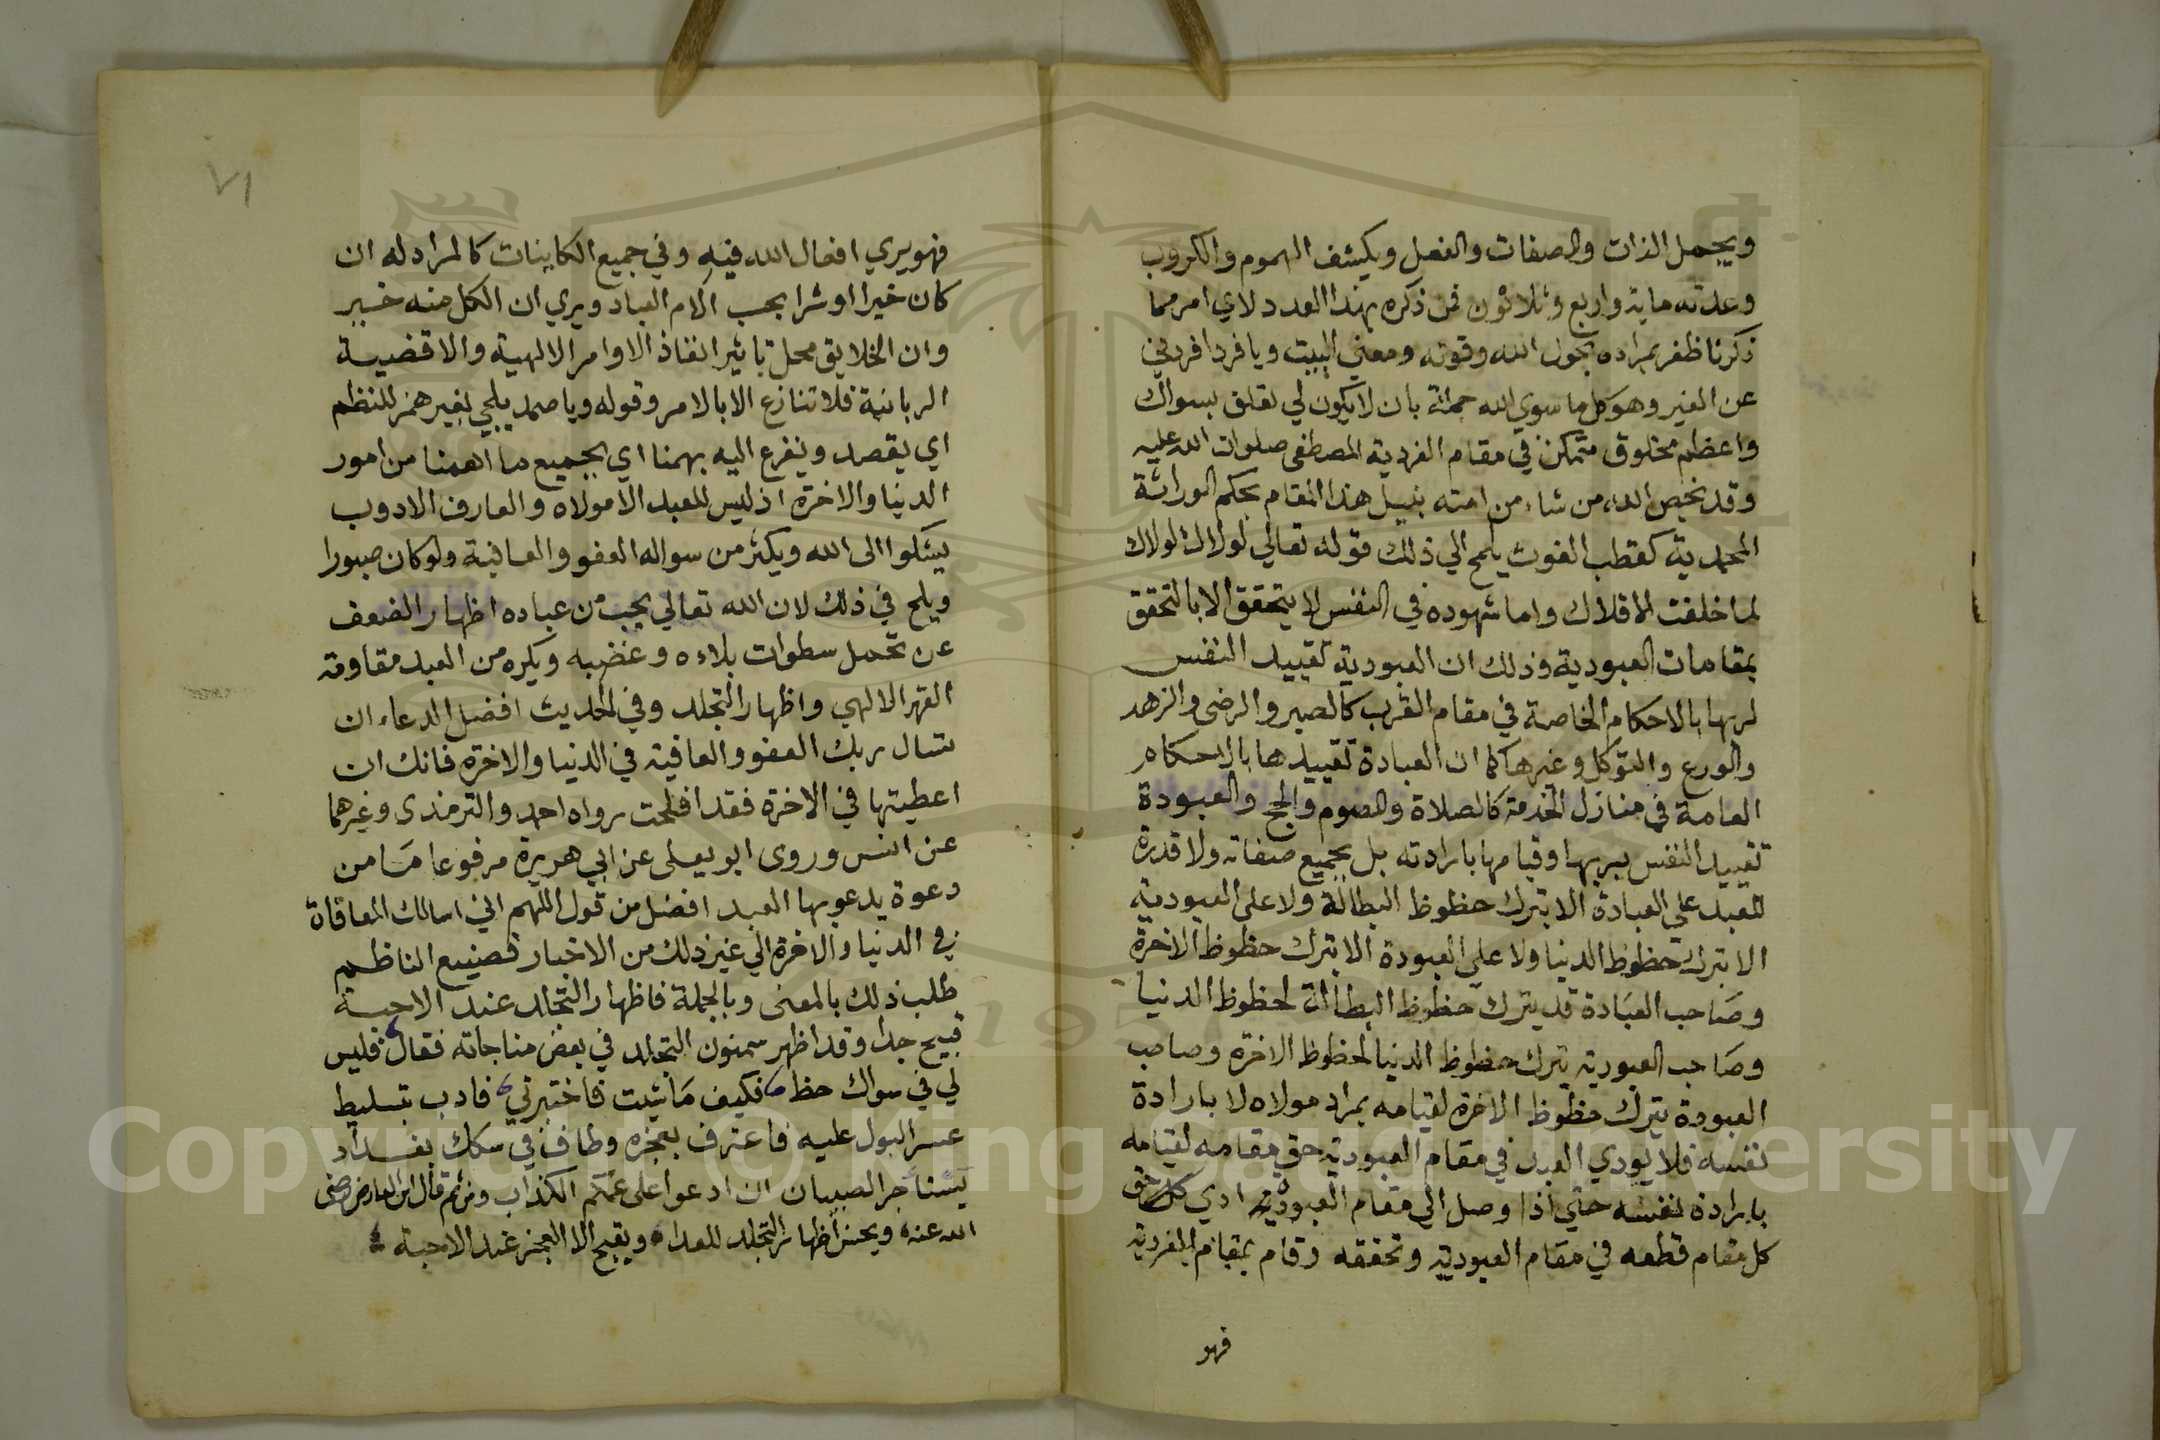 ويجمل الذات والصفات والفعل ويكشف الهموم والكروب
وعدته ماية واربع وثلاثون فمن ذكره بهذا العدد لاي امر مما
ذكرنا ظفر بمراده بحول الله وقوته ومعني البيت ويا فرد افردني
عن الغير وهو كل ما سوي الله بان لا يكون لي تعلق بسواك
واعظم مخلوق متمكن في مقام الفردية المصطفى صلوات الله عليه
وقد يخص الله من شاء من امته بنيل هذا المقام بحكم الوراثة
المحمدية كقطب الغوث يلمح الي ذلك قوله تعالي لولاك لولاك
لما خلقت الافلاك واما شهوده في النفس لا يتحقق الا بالتحقق
بمقامات العبودية وذلك ان العبودية تقييد النفس
لربها بالاحكام الخاصة في مقام القرب كالصبر والرضى والزهد
والورع والتوكل وغيرها كما ان العبادة تقييدها بالاحكام
العامة في منازل الخدمة كالصلاة والصوم والحج والعبودة
تقييد النفس بربها وقيامها بارادته بل بجميع صفاته ولا قدرة
للعبد علي العبادة الا بترك حظوظ البطالة ولا على العبودية
الا بترك حظوظ الدنيا ولا علي العبودة الا بترك حظوظ الاخرة
وصاحب العبادة قد يترك حظوظ البطالة لحظوظ الدنيا
وصاحب العبودية يترك حظوظ الدنيا لحظوظ الاخرة وصاحب
العبودة يترك حظوظ الاخرة لقيامه بمراد مولاه لا بارادة
نفسه فلا يودي العبد في مقام العبودية حق مقامه لقيامه
بارادة نفسه حتي اذا وصل الي مقام العبودية ادي كل حق
كل مقام قطعه في مقام العبودية وتحققه وقام بمقام الفردية
فهو
٧١
فهو يري افعال الله فيه وفي جميع الكاينات كالمراد له ان
كان خيرا او شرا بحسب الام العباد ويري ان الكل منه خير
وان الخلايق محل تاثير انفاذ الاوامر الالهية والاقضية
الربانية فلا تنازع الا بالامر وقوله ويا صمد يلجي بغير همز للنظم
اي يقصد ويفزع اليه بهمنا اي بجميع ما اهمنا من امور
الدنيا والاخرة اذ ليس للعبد الا مولاه والعارف الادوب
يشكوا الى الله ويكثر من سواله العفو والعافية ولو كان صبورا
ويلح في ذلك لان الله تعالي يحب من عباده اظهار الضعف
عن تحمل سطوات بلاءه وغضبه ويكره من العبد مقاومة
القهر الالهي واظهار التجلد وفي الحديث افضل الدعاء ان
تسال ربك العفو والعافية في الدنيا والاخرة فانك ان
اعطيتها في الاخرة فقد افلحت رواه احمد والترمذي وغيرهما
عن انس وروى ابو يعلى عن ابي هريرة مرفوعا مَا من
دعوة يدعو بها العبد افضل من قول اللهم اني اسالك المعافاة
في الدنيا والاخرة الي غير ذلك من الاخبار فصنيع الناظم
طلب ذلك بالمعنى وبالجملة فاظهار التجلد عند الاحبة
قبيح جدا وقد اظهر سمنون التجلد في بعض مناجاته فقال فليس
لي في سواك حظ فكيف مَا شيت فاختبرني فادب بتسليط
عسر البول عليه فاعترف بعجزه وطاف في سكك بغداد
يستأجر الصبيان ان ادعوا على عمّكم الكذاب ومن ثم قال ابن الفارض رضي
الله عنه ويحسن اظهار التجلد للعداه ويقبح الا العجز عند الاحبة
Copyright © King Saud University
1957